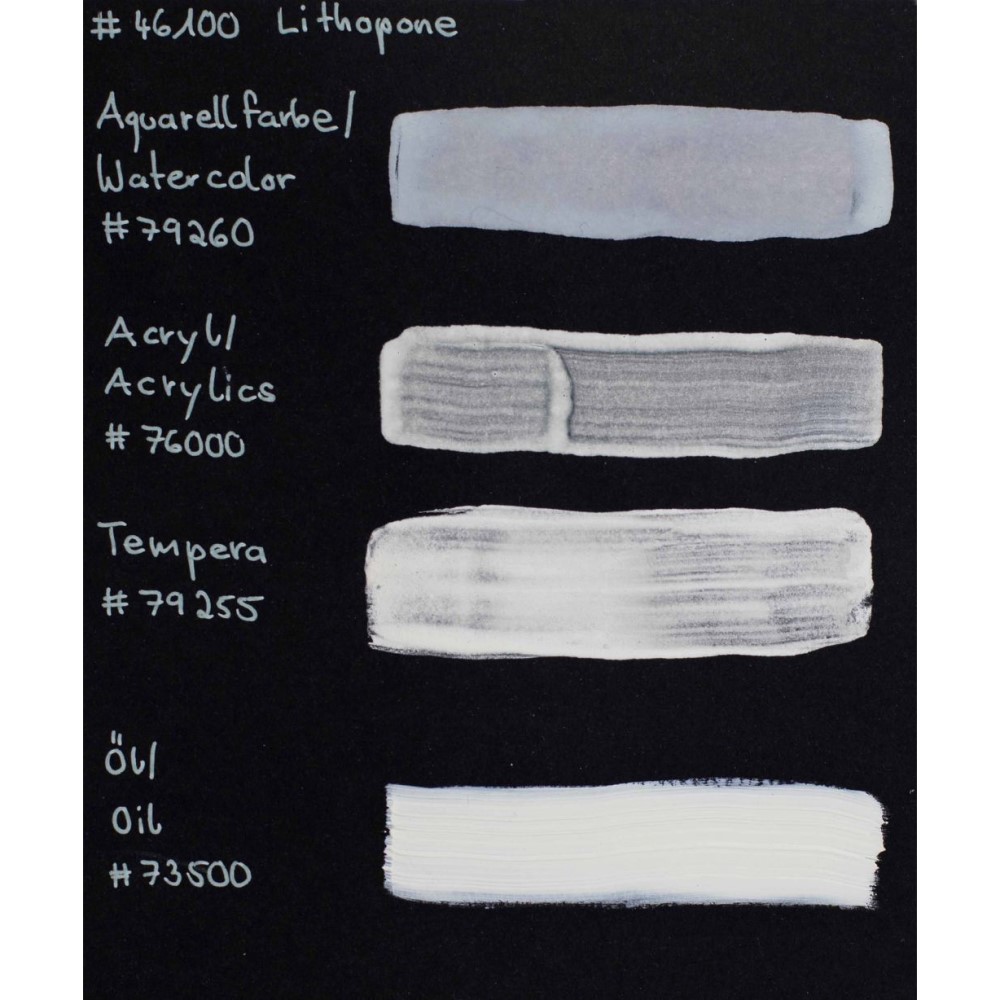 # 46100 Lithopone
Aquarellfarbe/
Watercolor
# 79260
Acryl/
Acrylics
# 76000
Tempera
# 79255
Öl/
Oil
# 73500